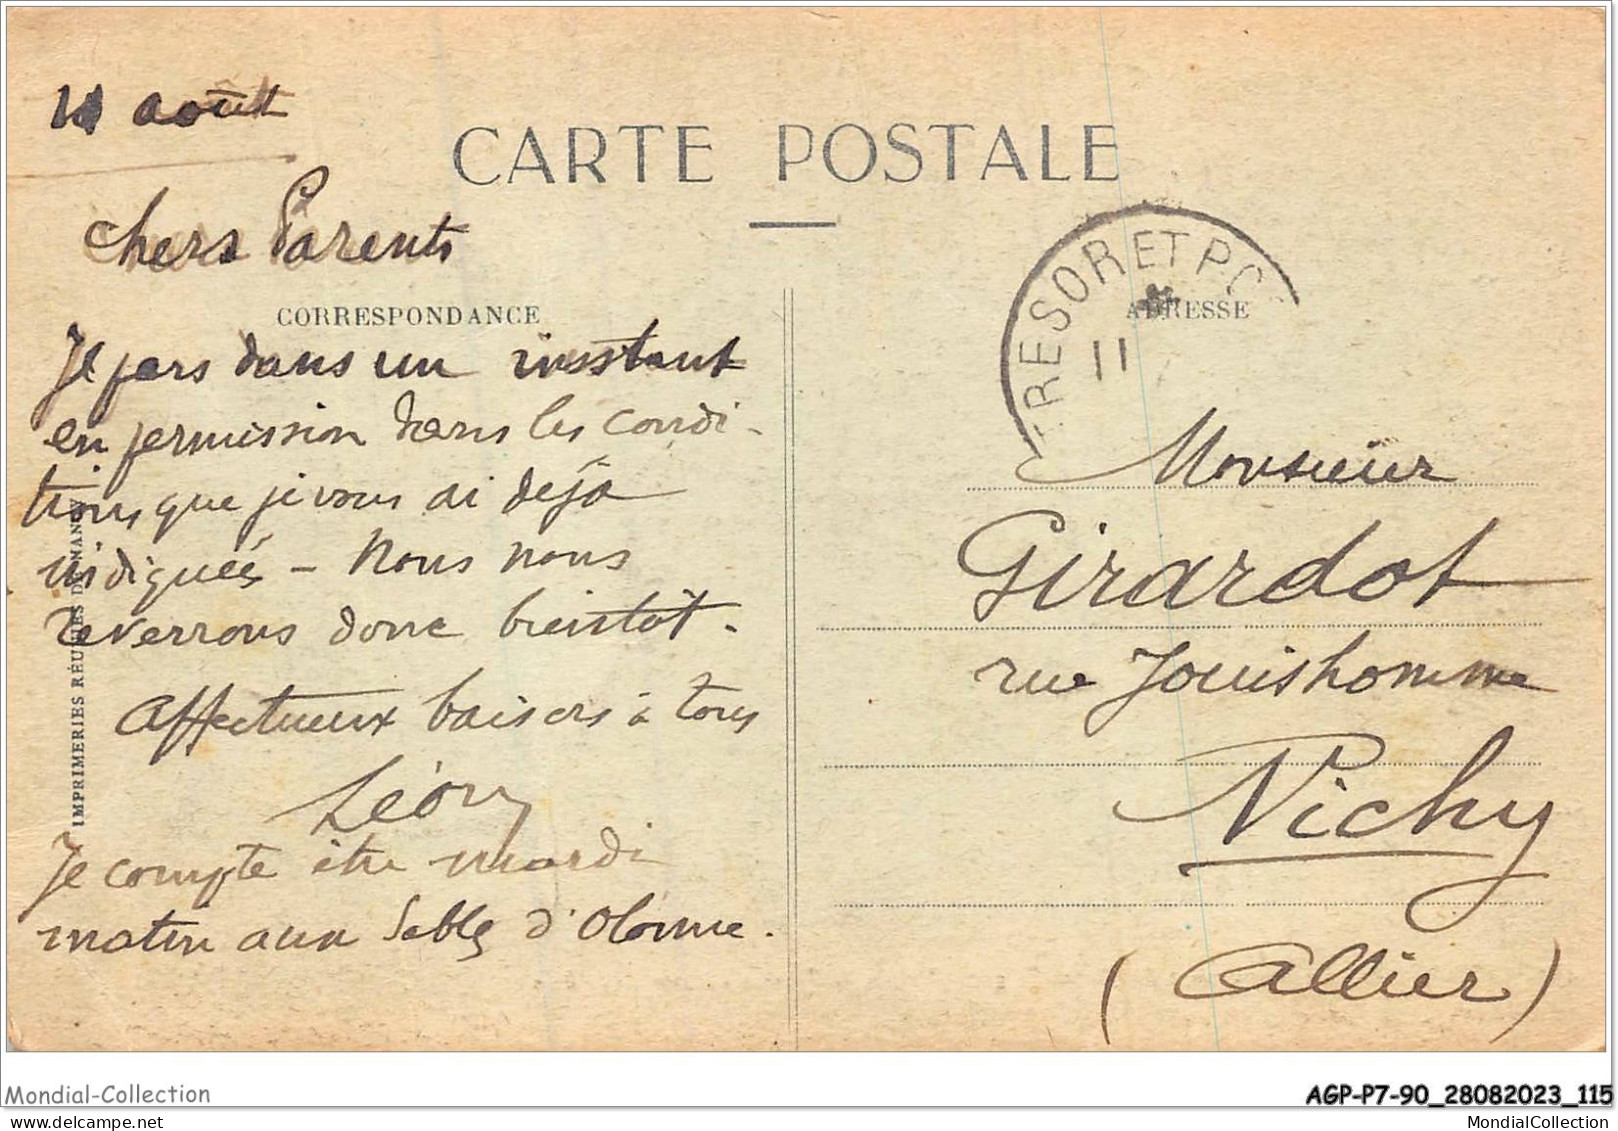 11 août
CARTE POSTALE
chers Parents
CORRESPONDANCE
Je pars dans un instant
en permission dans les condi-
tions que je vous ai déjà
indiquées - Nous nous
reverrons donc bientôt.
Affectueux baisers à tous
Léon
Je compte être mardi
matin aux Sables d'Olonne.
IMPRIMERIES RÉUNIES DE NANCY
TRESOR ET P
11
ADRESSE
Monsieur
Girardot
rue Jouishomme
Vichy
(Allier)
Mondial-Collection
AGP-P7-90_28082023_115
MondialCollection